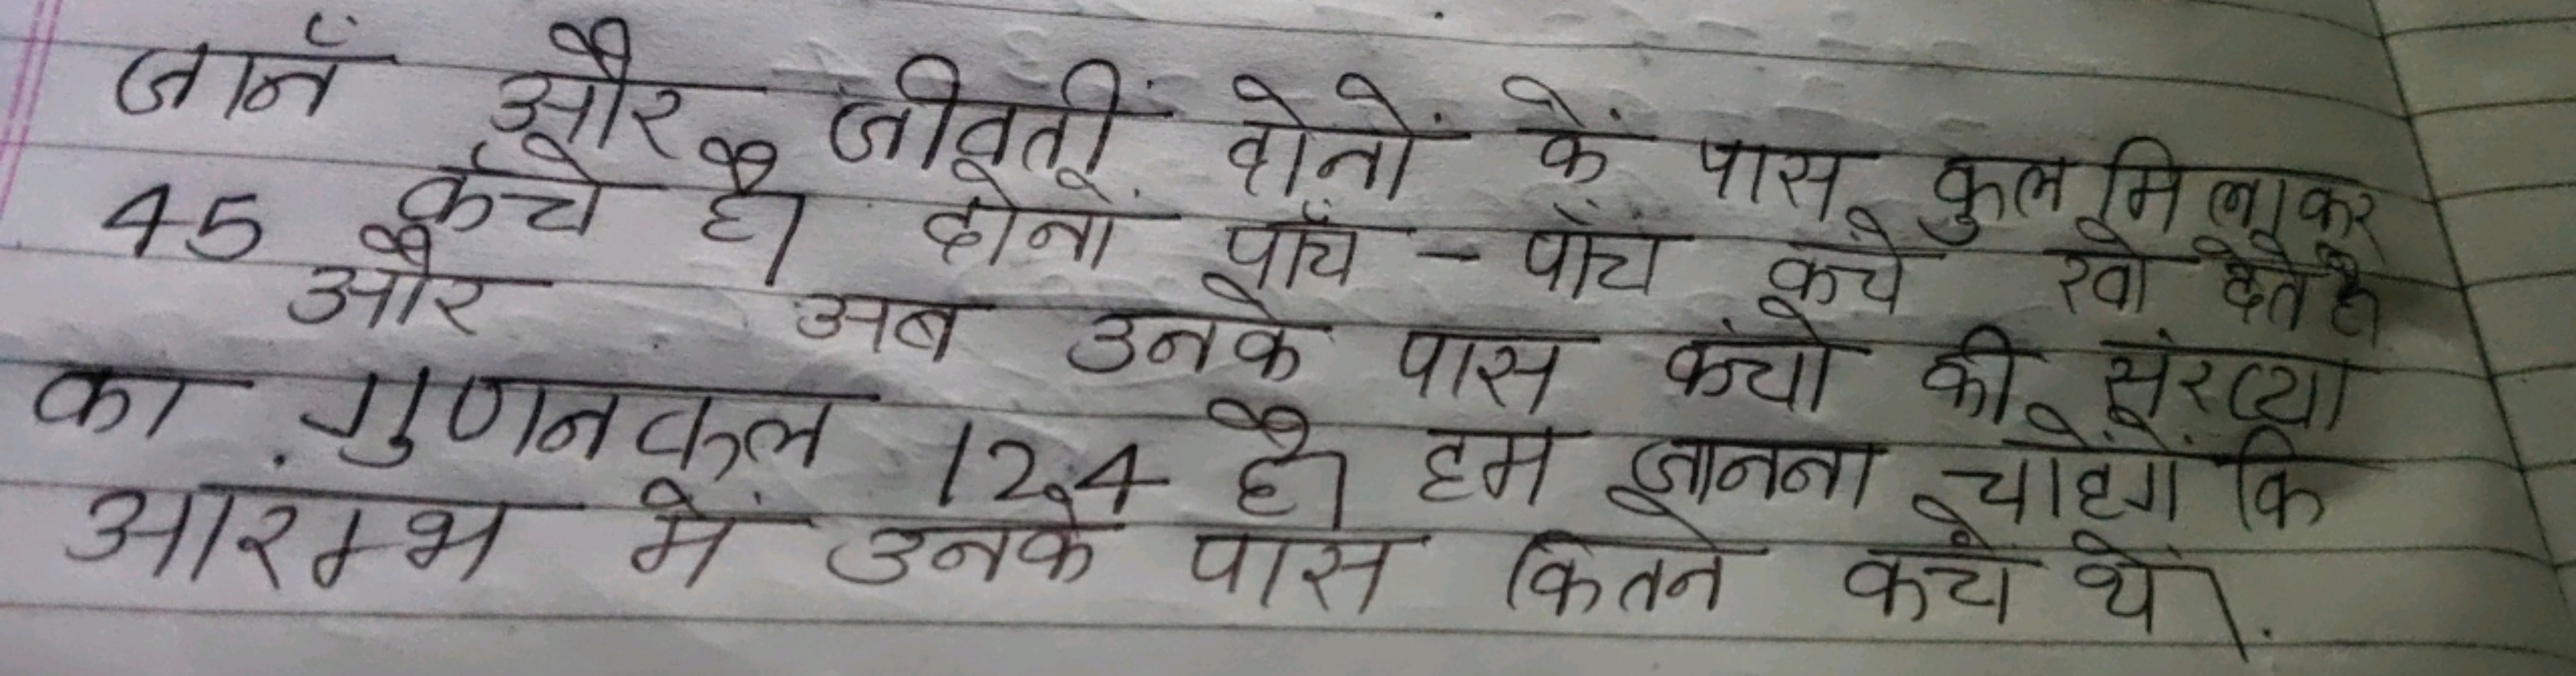 जानॅ और जीवंतीं दोनों कें पास कुल मिलाकर
45 कॅचे है। दोनों पाँच - पाँच कंचे खो देते है
और अब उनके पास कंचो की संख्या
का गुणनफल 124 है। हम जानना चाहेंगें कि
आरम्भ में उनके पास कितने कंचे थें।